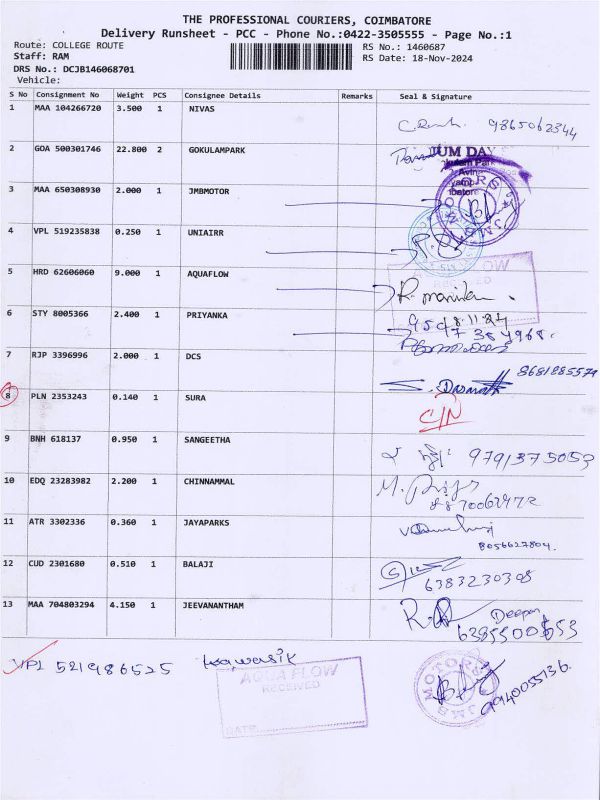 THE PROFESSIONAL COURIERS, COIMBATORE
Delivery Runsheet - PCC - Phone No.:0422-3505555 - Page No.:1
Route: COLLEGE ROUTE RS No.: 1460687
Staff: RAM RS Date: 18-Nov-2024
DRS No.: DCJB146068701
Vehicle:
S No Consignment No Weight PCS Consignee Details Remarks Seal & Signature
1 MAA 104266720 3.500 1 NIVAS 9865062344
2 GOA 500301746 22.800 2 GOKULAMPARK
3 MAA 650308930 2.000 1 JMBMOTOR
4 VPL 519235838 0.250 1 UNIAIRR
5 HRD 62606060 9.000 1 AQUAFLOW
6 STY 8005366 2.400 1 PRIYANKA
7 RJP 3396996 2.000 1 DCS
8 PLN 2353243 0.140 1 SURA C/N
9 BNH 618137 0.950 1 SANGEETHA 9791375053
10 EDQ 23283982 2.200 1 CHINNAMMAL
11 ATR 3302336 0.360 1 JAYAPARKS 8056627804.
12 CUD 2301680 0.510 1 BALAJI 6383230308
13 MAA 704803294 4.150 1 JEEVANANTHAM Deepan
VPL 521986525
AQUA FLOW
RECEIVED
DATE
JMB MOTORS
9940055136.